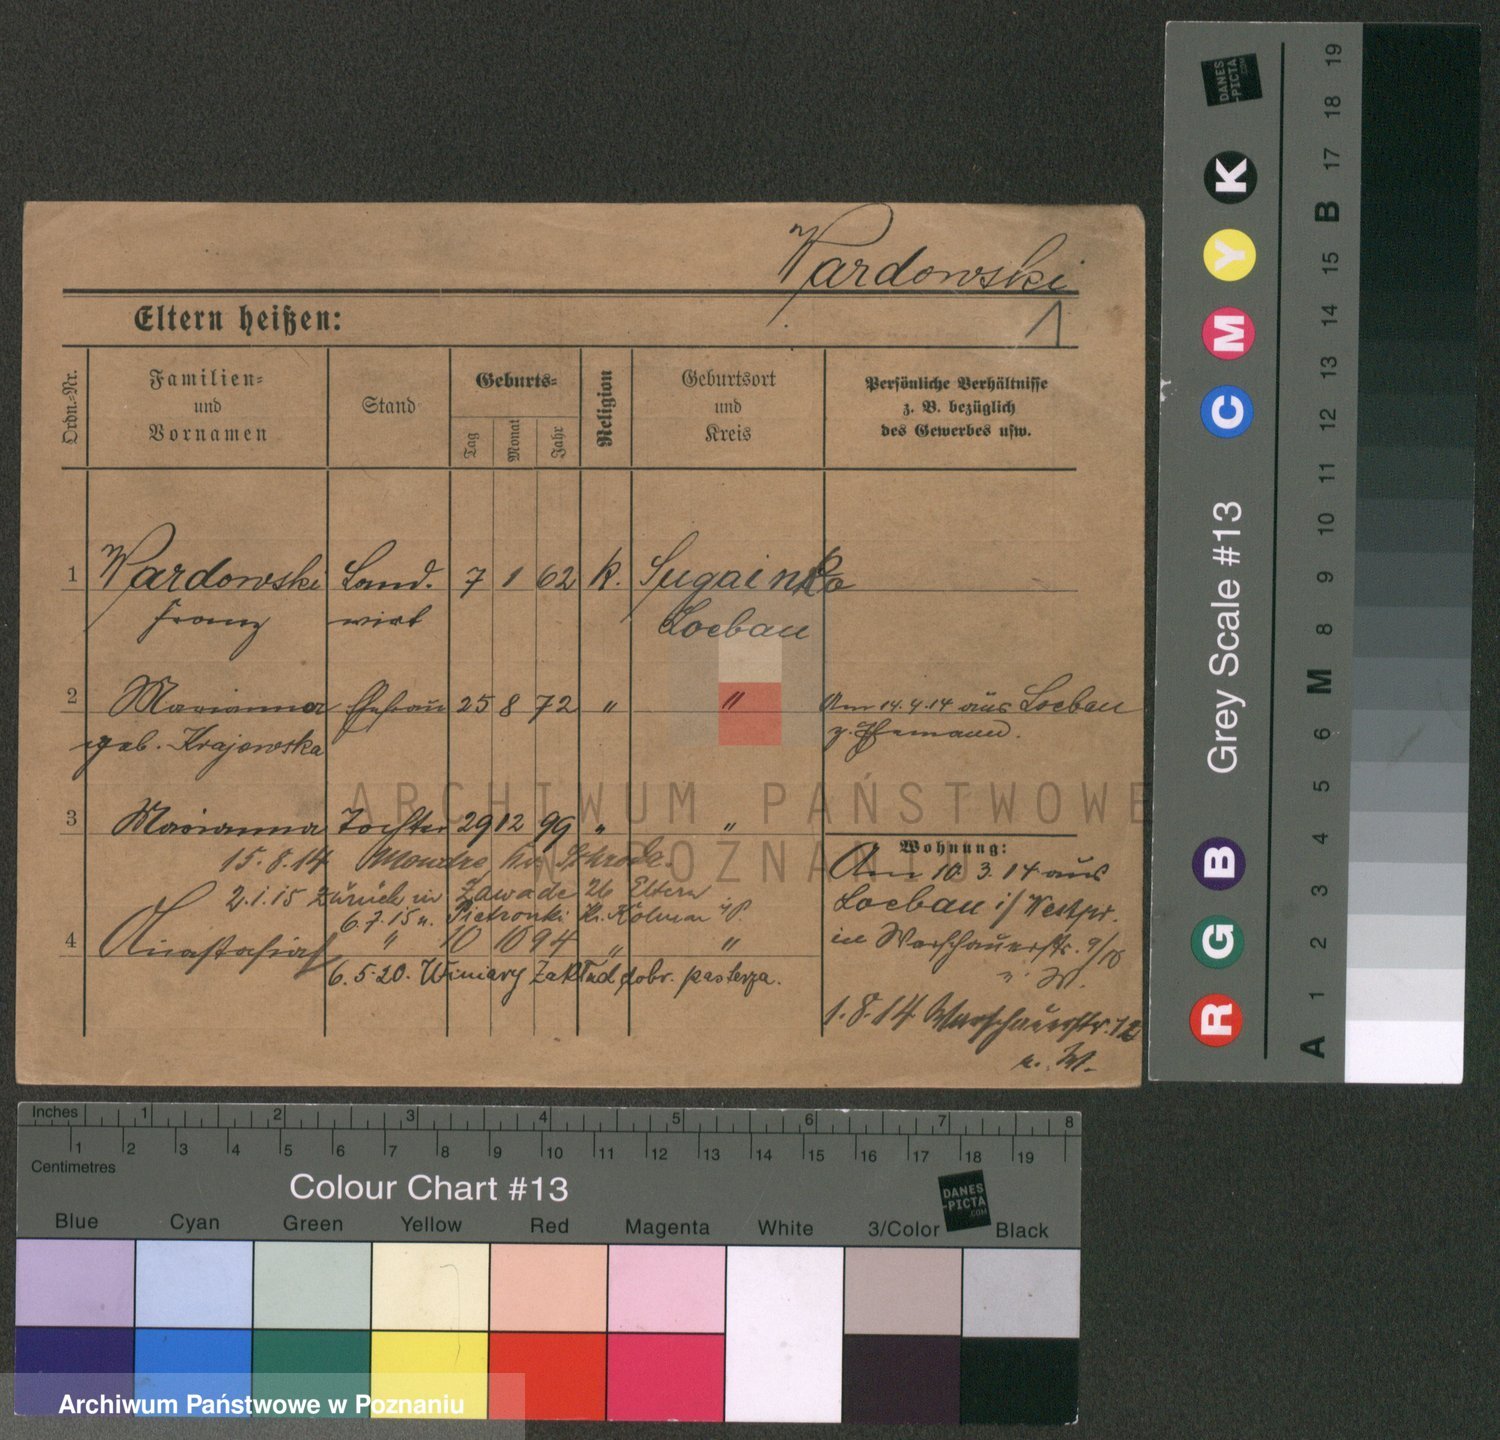 Wardowski
Eltern heißen:
1
Ordn.-Nr.
Familien- und Vornamen
Stand
Geburts-
Tag
Monat
Jahr
Religion
Geburtsort und Kreis
Persönliche Verhältnisse z. B. bezüglich des Gewerbes usw.
1 Wardowski Land- 7 1 62 k. Sugainko
Franz wirt Loebau
2 Marianna Ehefrau 25 8 72 " " Am 14.4.14 aus Loebau
geb. Krajewska z. Ehemann.
3 Marianna Tochter 29 12 99 " "
15.8.14 Mondre, Kr. Schroda.
2.1.15 zurück in Zawade 26 Eltern
6.7.15 n. Pietronki Kr. Kolmar i/P.
4 Anastasia " 10 10 94 " "
6.5.20. Winiary Zakład dobr. pasterza.
Wohnung:
Am 10.3.14 aus
Loebau i/Westpr.
in Warschauerstr. 9/10
b. W.
1.8.14 Warschauerstr. 12
b. W.
ARCHIWUM PAŃSTWOWE
W POZNANIU
DANES
-PICTA
.COM
R G B C M Y K
Grey Scale #13
A 1 2 3 4 5 6 M 8 9 10 11 12 13 14 15 B 17 18 19
Inches 1 2 3 4 5 6 7 8
Centimetres 1 2 3 4 5 6 7 8 9 10 11 12 13 14 15 16 17 18 19
Colour Chart #13
DANES
-PICTA
.COM
Blue Cyan Green Yellow Red Magenta White 3/Color Black
Archiwum Państwowe w Poznaniu